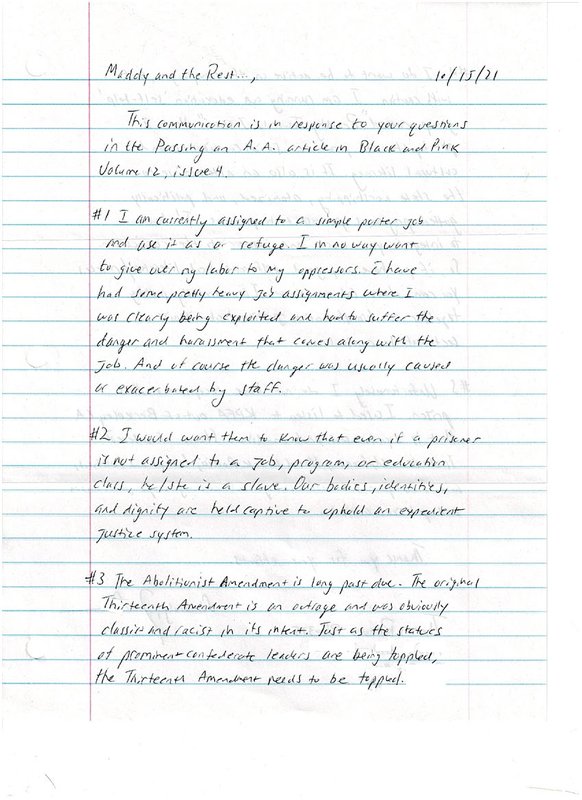 Maddy and the Rest..., 10/15/21
This communication is in response to your questions
in the Passing an A.A. article in Black and Pink
Volume 12, issue 4.
#1 I am currently assigned to a simple porter job
and use it as a refuge. I in no way want
to give over my labor to my oppressors. I have
had some pretty heavy job assignments where I
was clearly being exploited and had to suffer the
danger and harassment that comes along with the
job. And of course the danger was usually caused
or exacerbated by staff.
#2 I would want them to know that even if a prisoner
is not assigned to a job, program, or education
class, he/she is a slave. Our bodies, identities,
and dignity are held captive to uphold an expedient
justice system.
#3 The Abolitionist Amendment is long past due. The original
Thirteenth Amendment is an outrage and was obviously
classist and racist in its intent. Just as the statues
of prominent confederate leaders are being toppled,
the Thirteenth Amendment needs to be toppled.